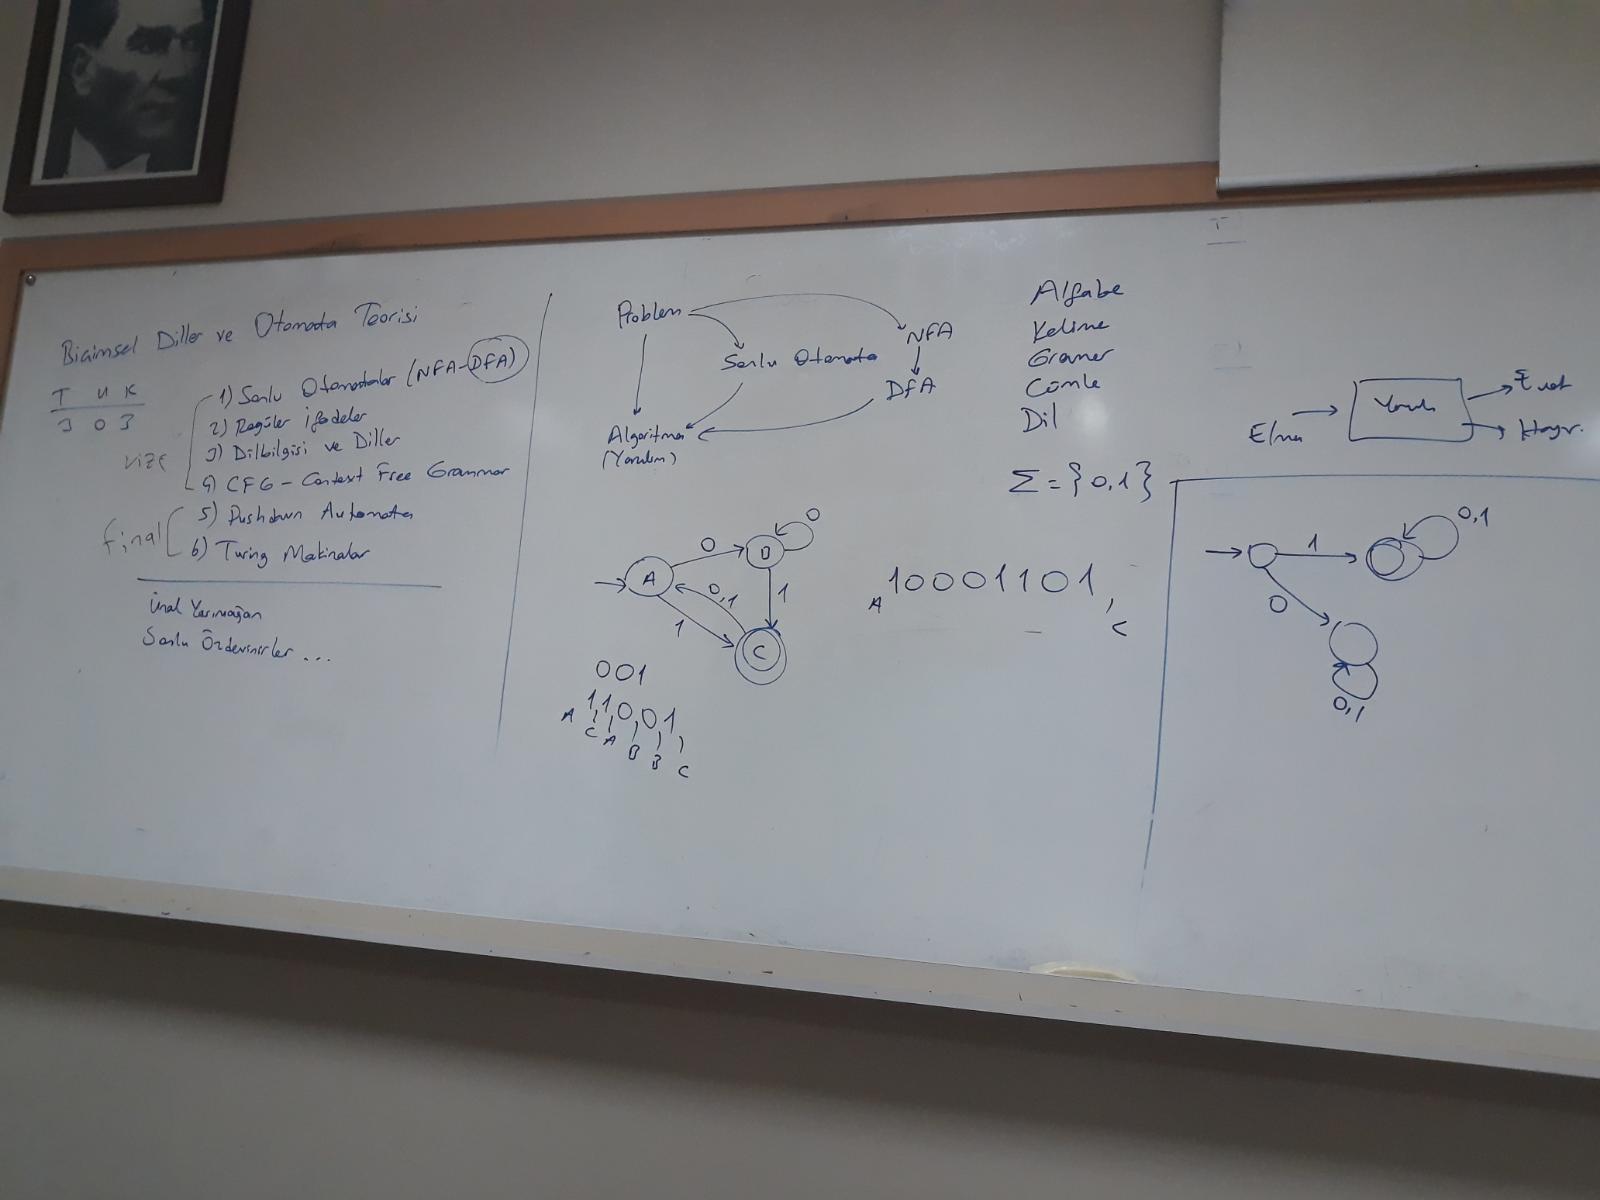 Biçimsel Diller ve Otomata Teorisi
T U K
3 0 3
vize
1) Sonlu Otomatalar (NFA-DFA)
2) Regüler İfadeler
3) Dilbilgisi ve Diller
4) CFG - Context Free Grammar
final
5) Pushdown Automata
6) Turing Makinalar
Ünal Yarımağan
Sonlu Özdevinirler ...
Problem
NFA
Sonlu Otomata
DFA
Algoritma
(Yazılım)
Alfabe
Kelime
Gramer
Cümle
Dil
Σ = {0,1}
A
0
B
0
0,1
1
1
C
001
11001
A C A B B C
A 10001101 C
Elma
Evet
Hayır.
1
0,1
0
0,1